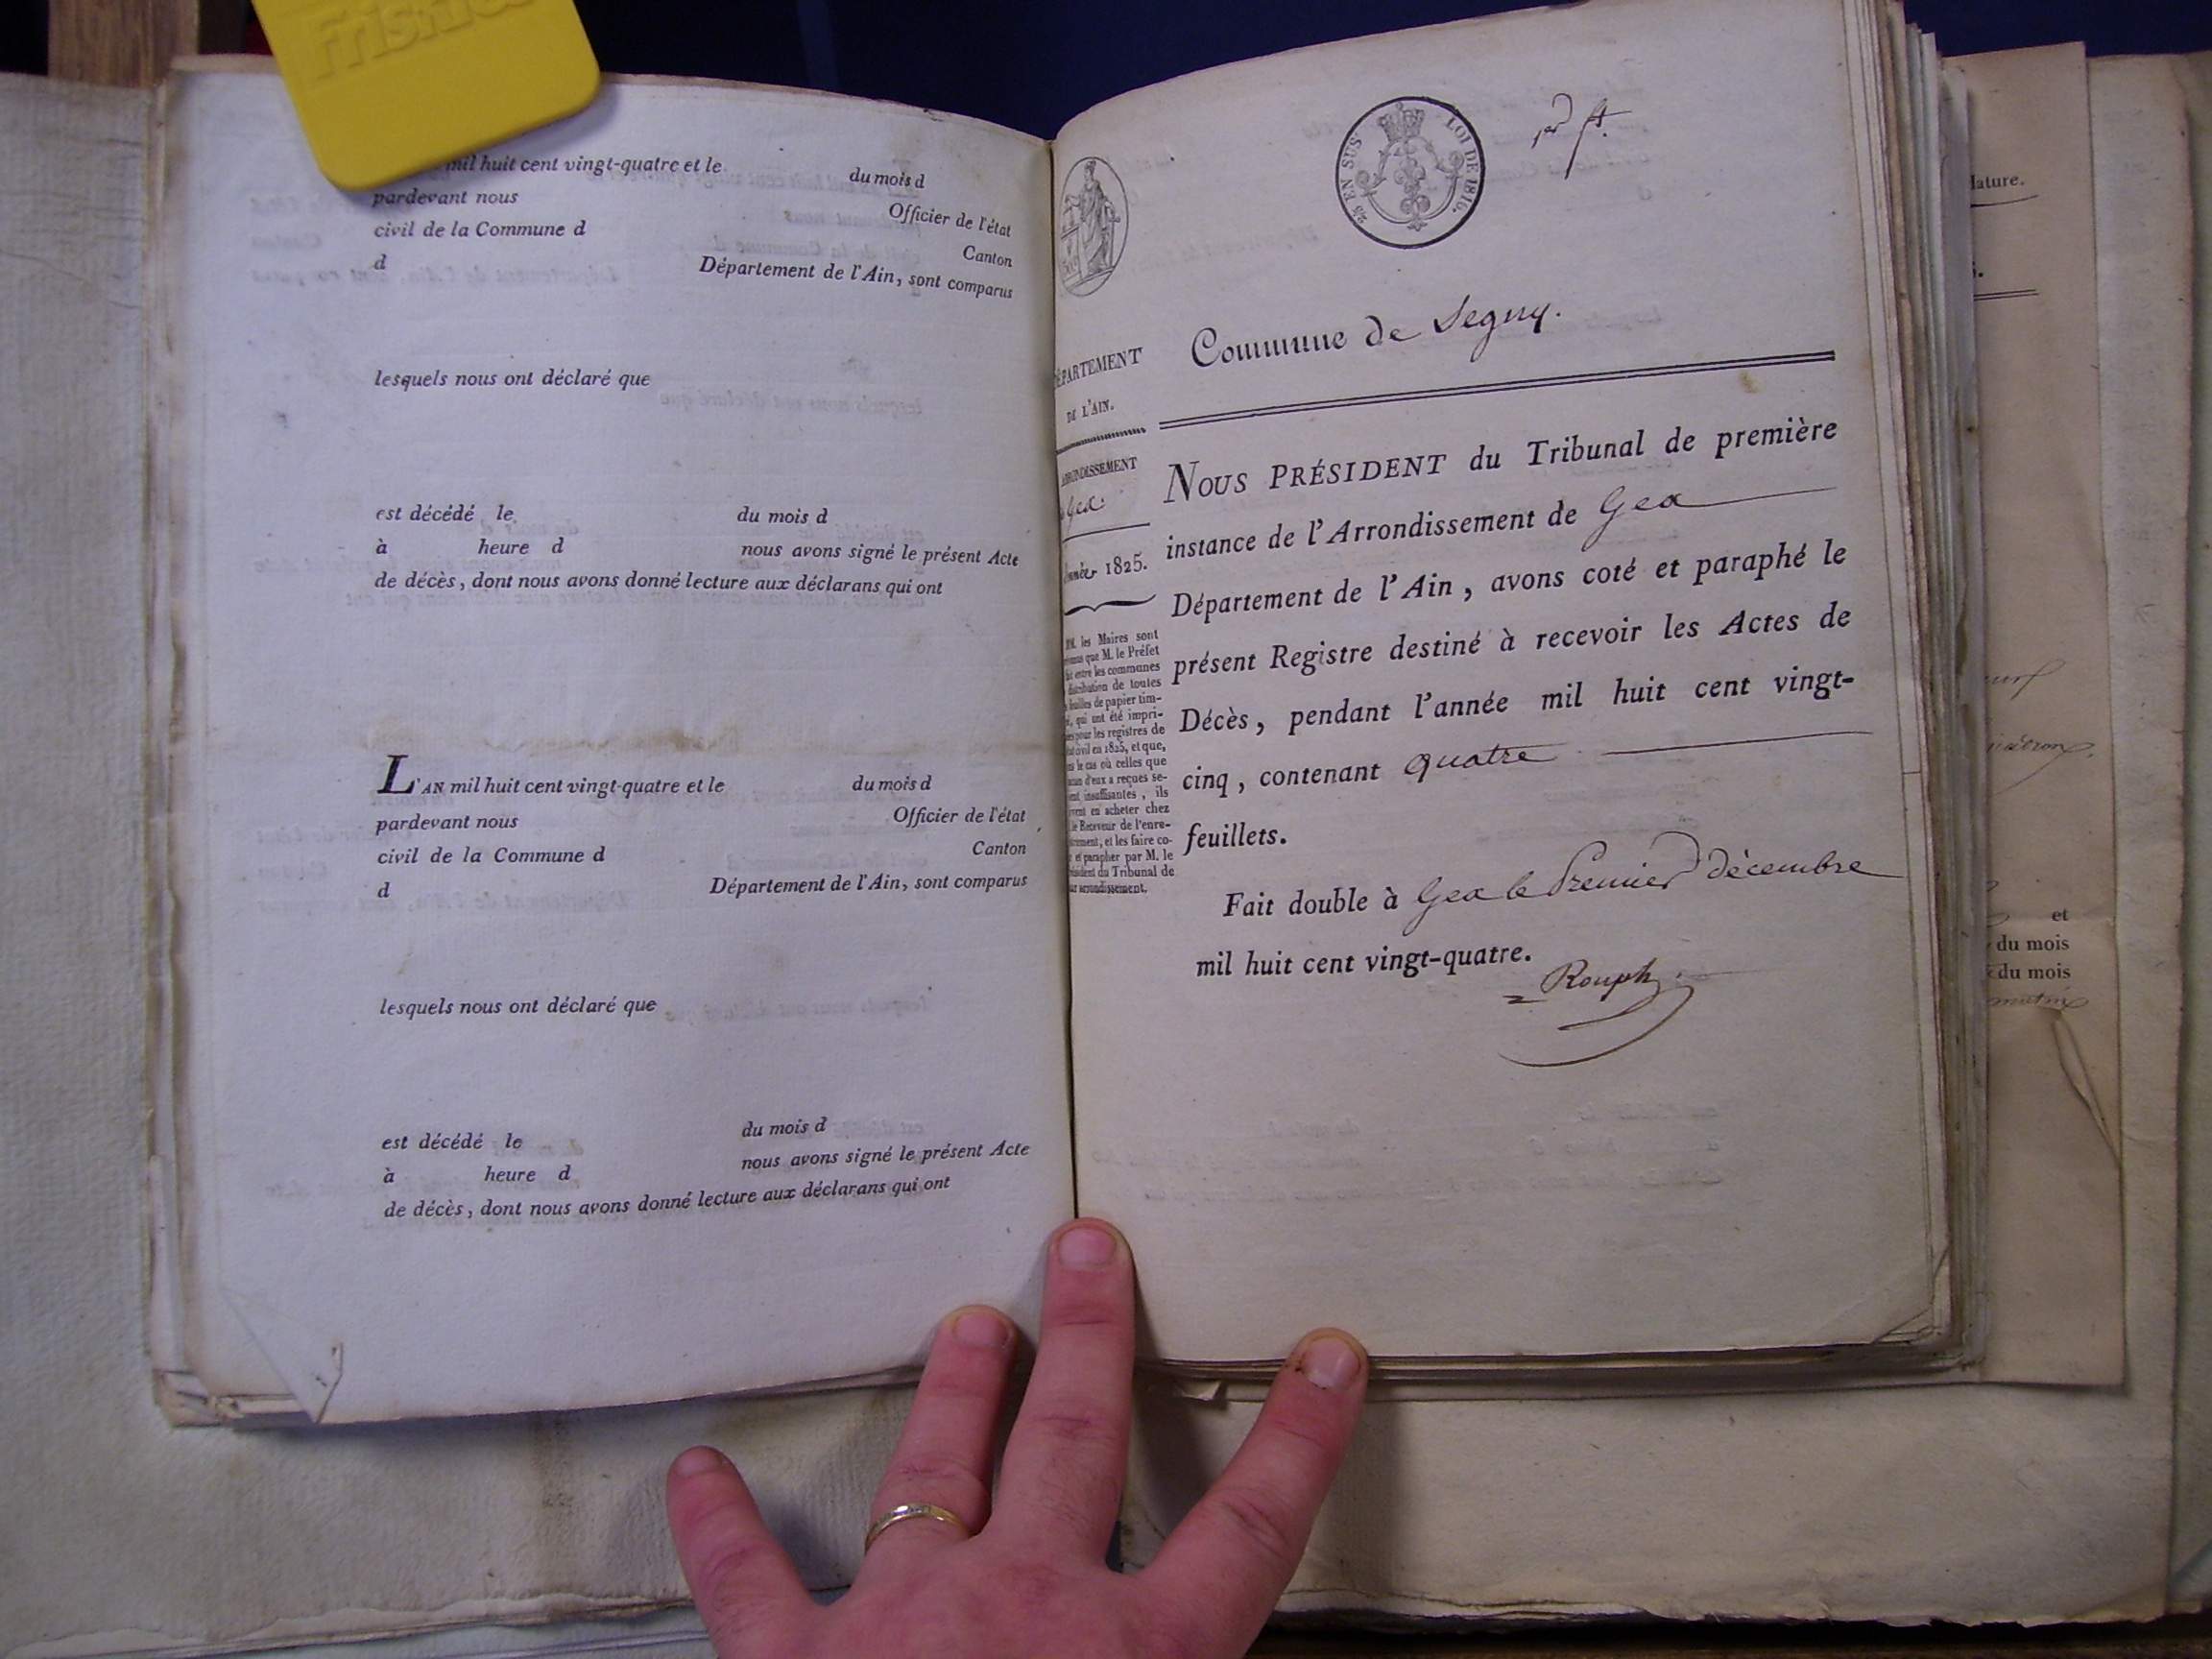 mil huit cent vingt-quatre et le du mois d
pardevant nous Officier de l'état
civil de la Commune d Canton
d Département de l'Ain, sont comparus
lesquels nous ont déclaré que
est décédé le du mois d
à heure d nous avons signé le présent Acte
de décès, dont nous avons donné lecture aux déclarans qui ont
L'AN mil huit cent vingt-quatre et le du mois d
pardevant nous Officier de l'état
civil de la Commune d Canton
d Département de l'Ain, sont comparus
lesquels nous ont déclaré que
est décédé le du mois d
à heure d nous avons signé le présent Acte
de décès, dont nous avons donné lecture aux déclarans qui ont
25 EN SUS LOI DE 1816.
Commune de Segny.
DÉPARTEMENT
DE L'AIN.
ARRONDISSEMENT
Gex.
1825.
MM. les Maires sont
que M. le Préfet
entre les communes
distribution de toutes
feuilles de papier tim-
qui ont été impri-
pour les registres de
civil en 1825, et que,
le cas où celles que
d'eux a reçues se-
insuffisantes, ils
en acheter chez
le Receveur de l'enre-
et les faire co-
et parapher par M. le
Président du Tribunal de
arrondissement.
NOUS PRÉSIDENT du Tribunal de première
instance de l'Arrondissement de Gex
Département de l'Ain, avons coté et paraphé le
présent Registre destiné à recevoir les Actes de
Décès, pendant l'année mil huit cent vingt-
cinq, contenant quatre
feuillets.
Fait double à Gex le Premier décembre
mil huit cent vingt-quatre.
Rouph
et
du mois
du mois